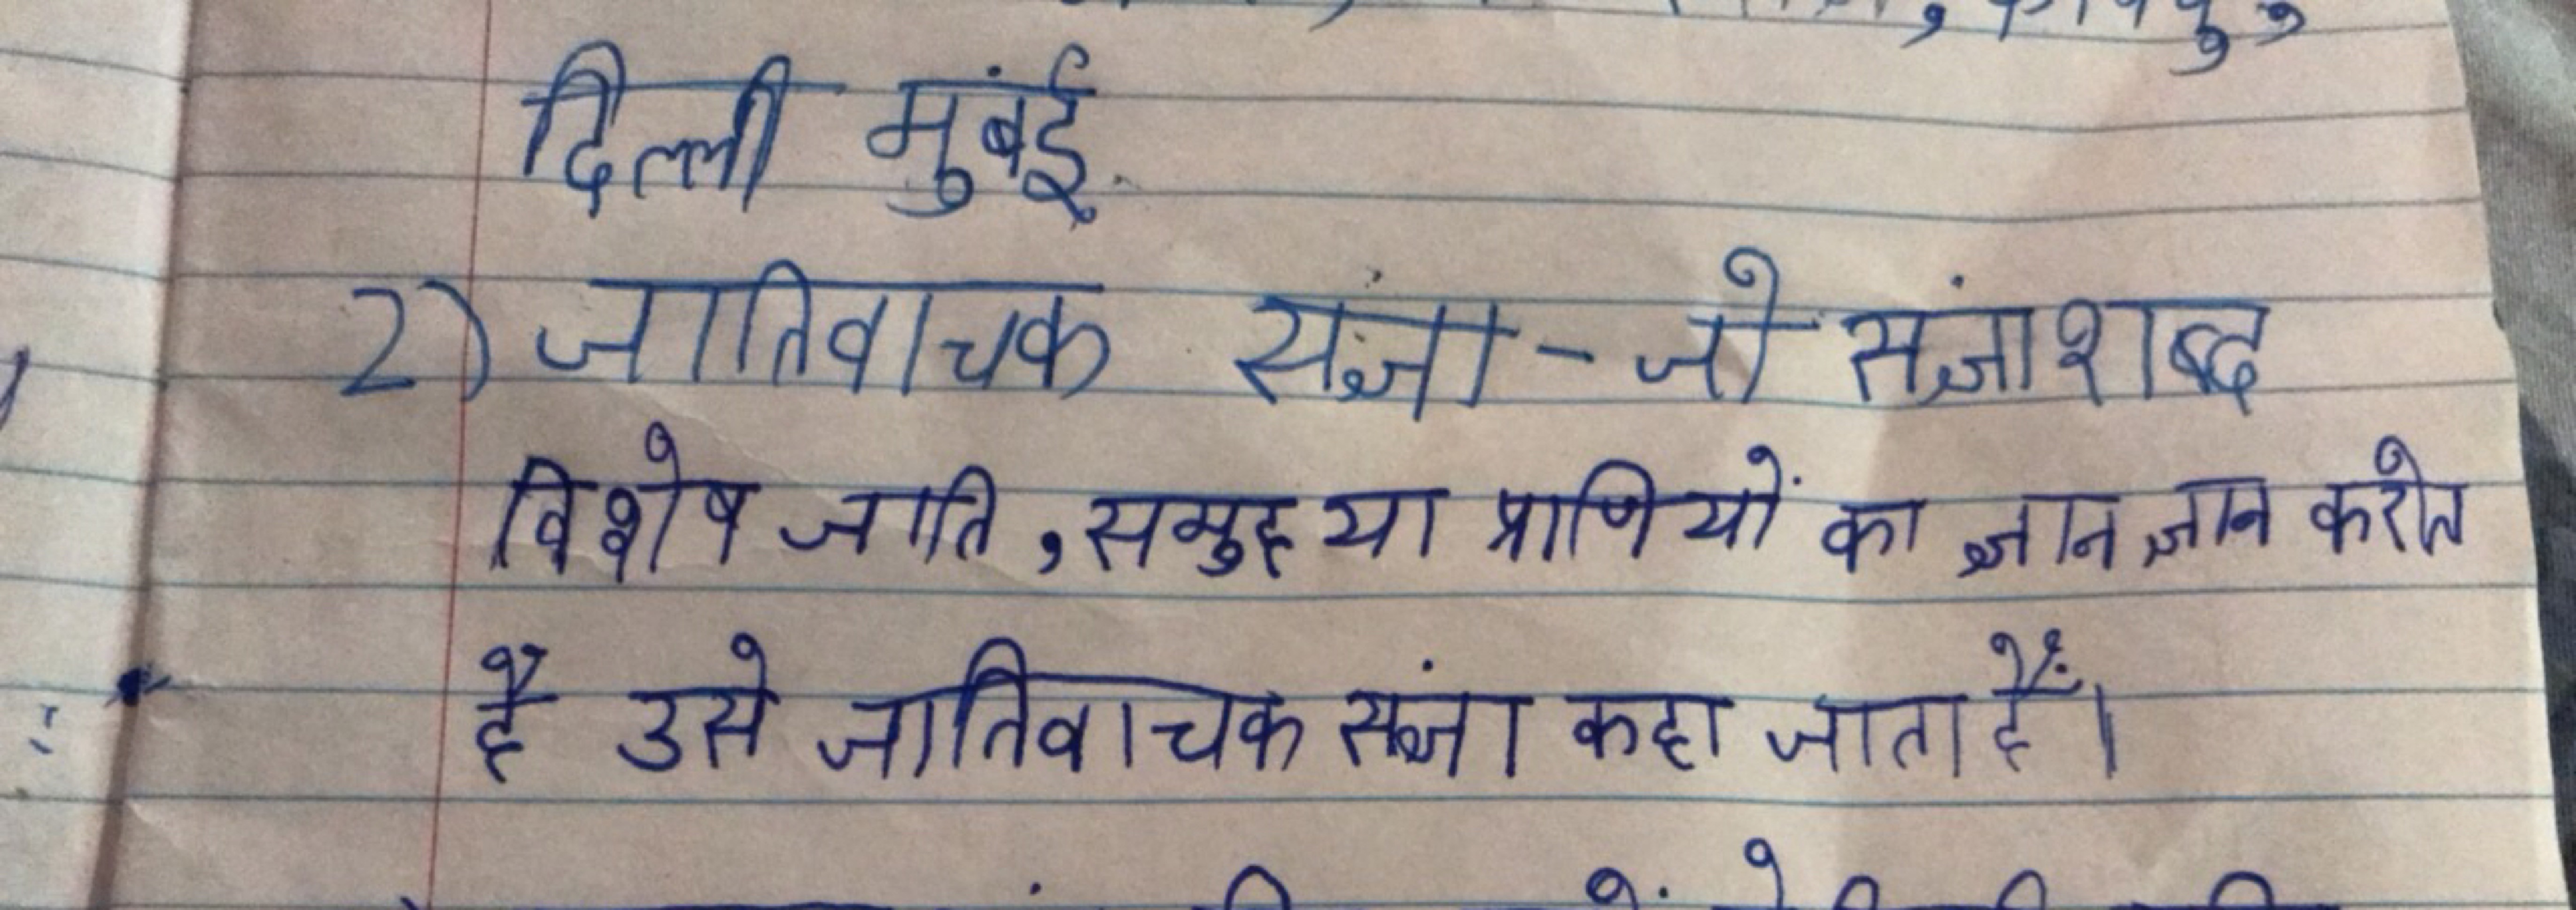 दिल्ली मुबंई
2) जातिवाचक संज्ञा - जो संज्ञा शब्द
विशेष जाति , समुह या प्राणियों का ज्ञान ज्ञान करोत
है उसे जातिवाचक संज्ञा कहा जाता हैं।